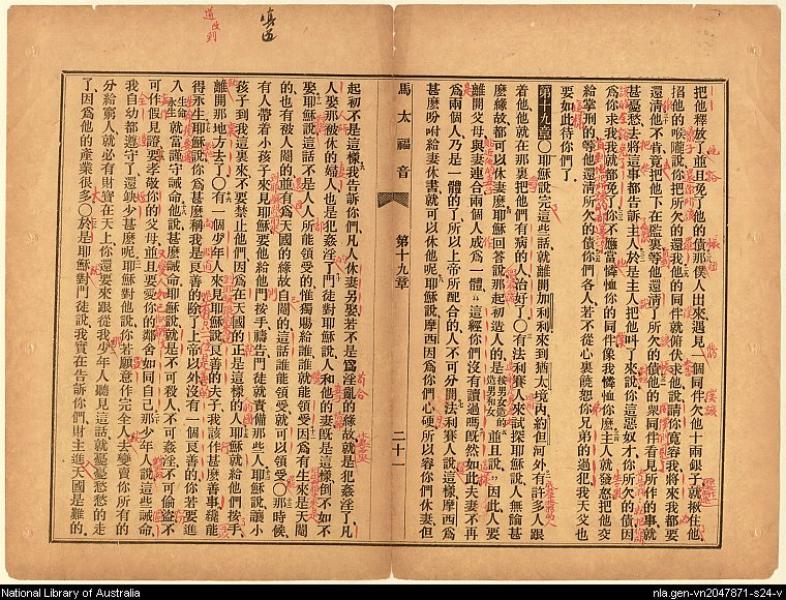 把他釋放了並且免了他的債那僕人出來遇見一個同件欠他十兩銀子就揪住他、
招他的喉嚨說你把所欠的還我他的同件就俯伏求他說請你寬容我將來我都要
還清他不肯竟把他下在監裏等他還清了所欠的債他的衆同件看見所作的事就
甚憂愁去將這事都告訴主人於是主人把他叫了來說你這惡奴才你所欠的債因
爲你求我我就都免了你不應當憐恤你的同件像我憐恤你麼主人就發怒把他交
給掌刑的等他還清所欠的債你們各人若不從心裏饒恕你兄弟的過犯我天父也
要如此待你們了
第十九章〇耶穌說完這些話就離開加利利來到猶太境內約但河外有許多人跟
着他他就在那裏把他們有病的人治好了〇有法利賽人來試探耶穌說人無論甚
麼緣故都可以休妻麼耶穌回答說那起初造人的是按男女造的造男和女並且說因此人要
離開父母與妻連合兩個人成爲一體這經你們沒有讀過嗎旣然如此夫妻不再
爲兩個人乃是一體的了所以上帝所配合的人不可分開法利賽人說這樣摩西爲
甚麼吩咐給妻休書就可以休他呢耶穌說摩西因爲你們心硬所以容你們休妻但
馬太福音
第十九章
二十一
起初不是這樣我告訴你們凡人休妻另娶若不是爲淫亂的緣故就是犯姦淫了凡
人娶那被休的婦人也是犯姦淫了門徒對耶穌說人和他的妻旣是這樣倒不如不
娶耶穌說這話不是人人所能領受的惟獨賜給誰誰就能領受因爲有生來是天閹
的也有被人閹的並有爲天國的緣故自閹的這話誰能領受就可以領受〇那時候
有人帶着小孩子來見耶穌要他給他們按手禱告門徒就責備那些人耶穌說讓小
孩子到我這裏來不要禁止他們因爲在天國的正是這樣的人耶穌就給他們按手、
離開那地方去了〇有一個少年人來見耶穌說良善的夫子我該作甚麼善事纔能
得永生耶穌說你爲甚麼稱我是良善的除了上帝以外沒有一個良善的你若要進
入生命永生就當謹守誡命他說甚麼誡命耶穌說就是不可殺人不可姦淫不可偷盜不
可作假見證要孝敬你的父母並且要愛你的鄰舍如同自己那少年人說這些誡命、
我自幼都遵守了還缺少甚麼呢耶穌對他說你若願意作完全人去變賣你所有的
分給窮人就必有財寶在天上你還要來跟從我少年人聽見這話就憂憂愁愁的走
了因爲他的產業很多〇於是耶穌對門徒說我實在告訴你們財主進天國是難的、
National Library of Australia
nla.gen-vn2047871-s24-v